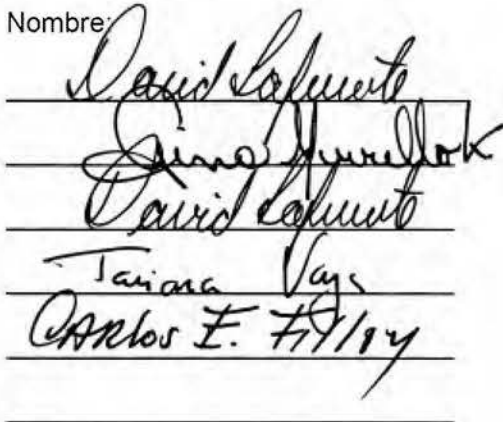 Nombre:
David Lafuente
Gina Murillo K
David Lafuente
Tatiana Vargas
CARlos E.